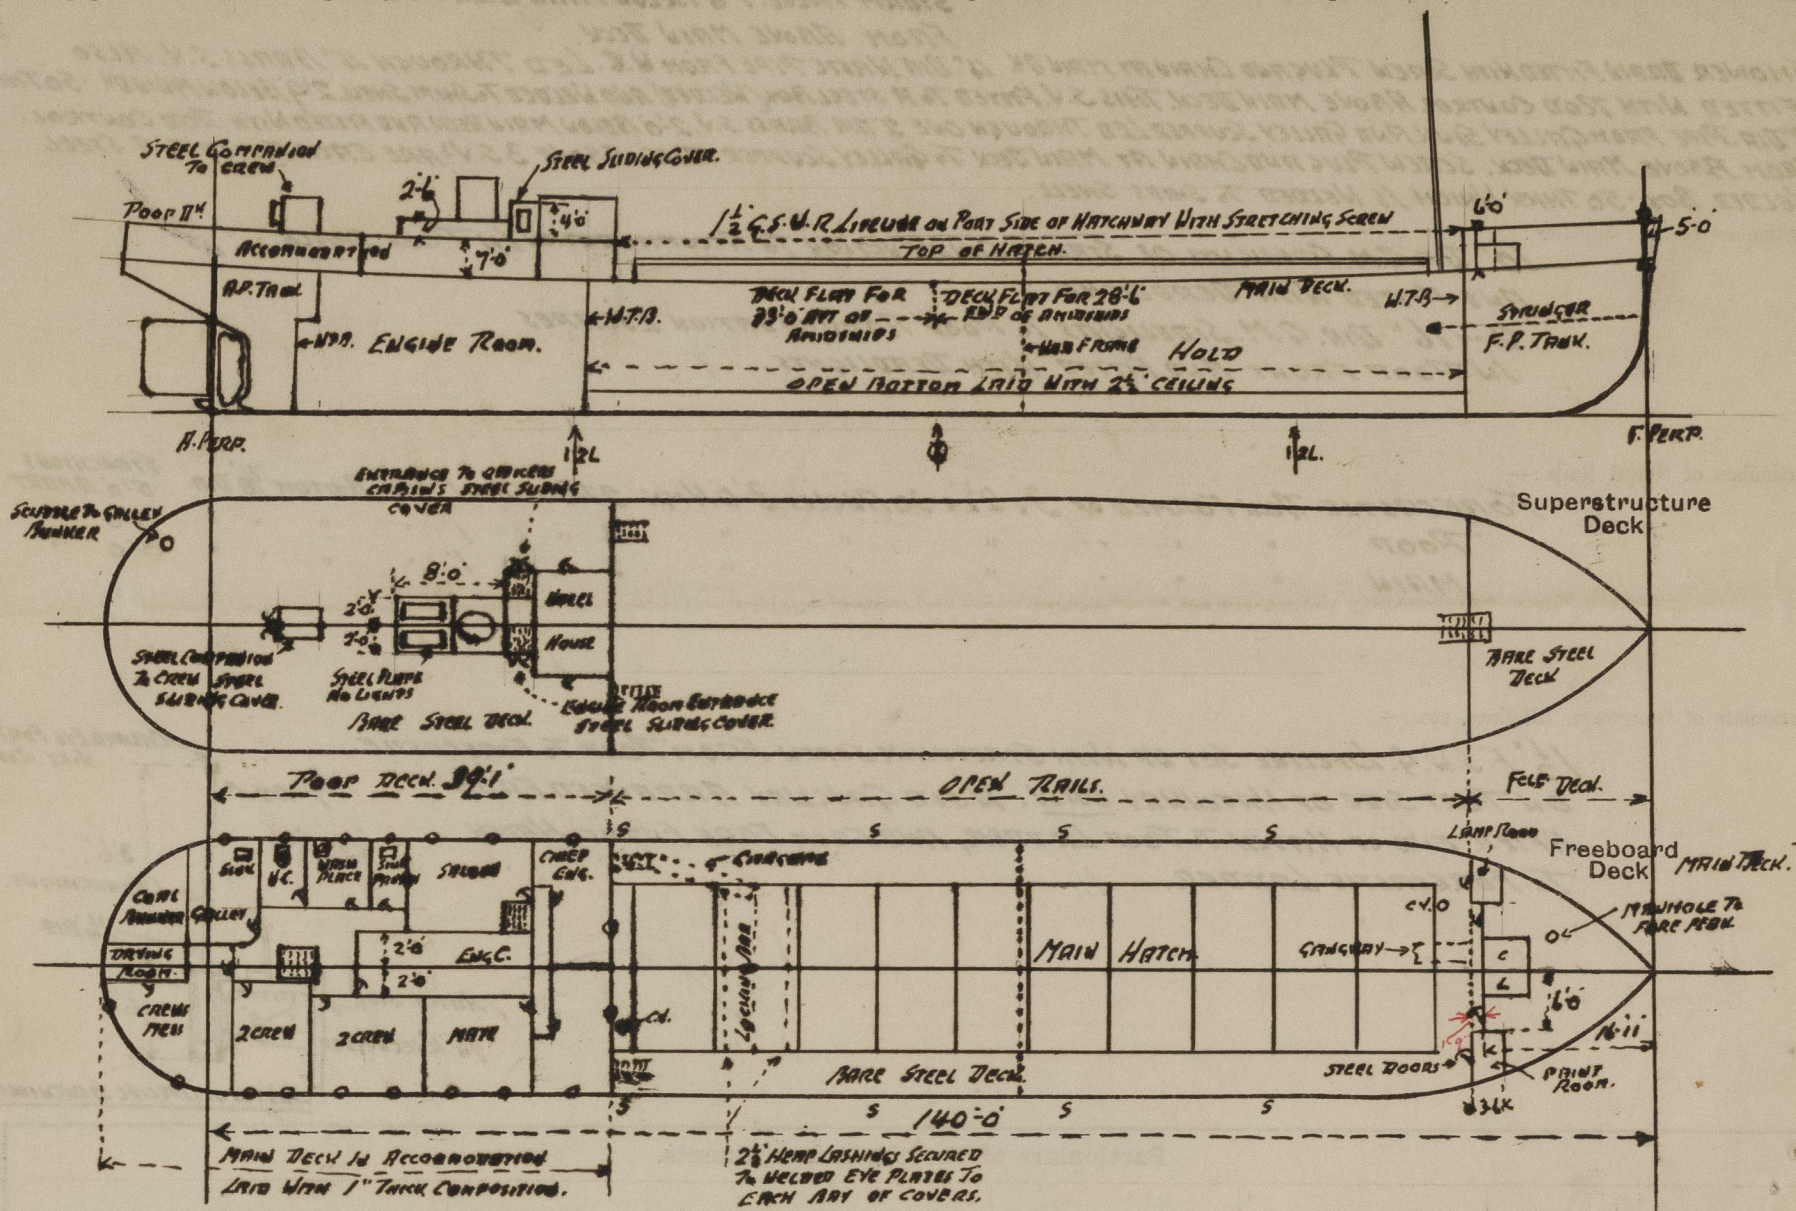 STEEL COMPANION
TO CREW
STEEL SLIDING COVER.
2'-6"
POOP DK
4'0"
1½" G.S.W.R LIFELINE ON PORT SIDE OF HATCHWAY WITH STRETCHING SCREW
6'0"
5'-0"
ACCOMMODATION
7'-0"
TOP OF HATCH.
A.P. TANK
DECK FLAT FOR
AFT OF
AMIDSHIPS
DECK FLAT FOR 28'-6"
FWD OF AMIDSHIPS
MAIN DECK.
W.T.B
W.T.B.
W.T.B.
ENGINE ROOM.
HOLD
STRINGER
F.P. TANK.
OPEN BOTTOM LAID WITH 2½" CEILING
A. PERP.
½L
½L.
F. PERP.
ENTRANCE TO OFFICERS
CABINS STEEL SLIDING
COVER
SCUTTLE TO GALLEY
BUNKER
Superstructure
Deck
8'-0"
2'0"
2'0"
WHEEL
HOUSE
STEEL COMPANION
TO CREW STEEL
SLIDING COVER.
STEEL PLATE
NO LIGHTS
BARE STEEL DECK.
ENGINE ROOM ENTRANCE
STEEL SLIDING COVER
BARE STEEL
DECK
POOP DECK. 39'-1"
OPEN RAILS.
FCLE DECK.
S
S
S
S
LAMP ROOM
Freeboard
Deck
MAIN DECK.
W.C.
WASH
PLACE
SALOON
CHIEF
ENG.
COAL
BUNKER
GALLEY
C.V.
MANHOLE TO
FORE PEAK
DRYING
ROOM.
2'0"
2'0"
ENG C.
LOCKING BAR
MAIN HATCH.
GANGWAY
C
L
CREWS
MESS
2 CREW
2 CREW
MATE
C.V.
6'0"
16'-11"
BARE STEEL DECK.
STEEL DOORS
PAINT
ROOM.
S
S
S
S
140'-0"
MAIN DECK IN ACCOMMODATION
LAID WITH 1" THICK COMPOSITION.
2½" HEMP LASHINGS SECURED
TO WELDED EYE PLATES TO
EACH BAY OF COVERS.